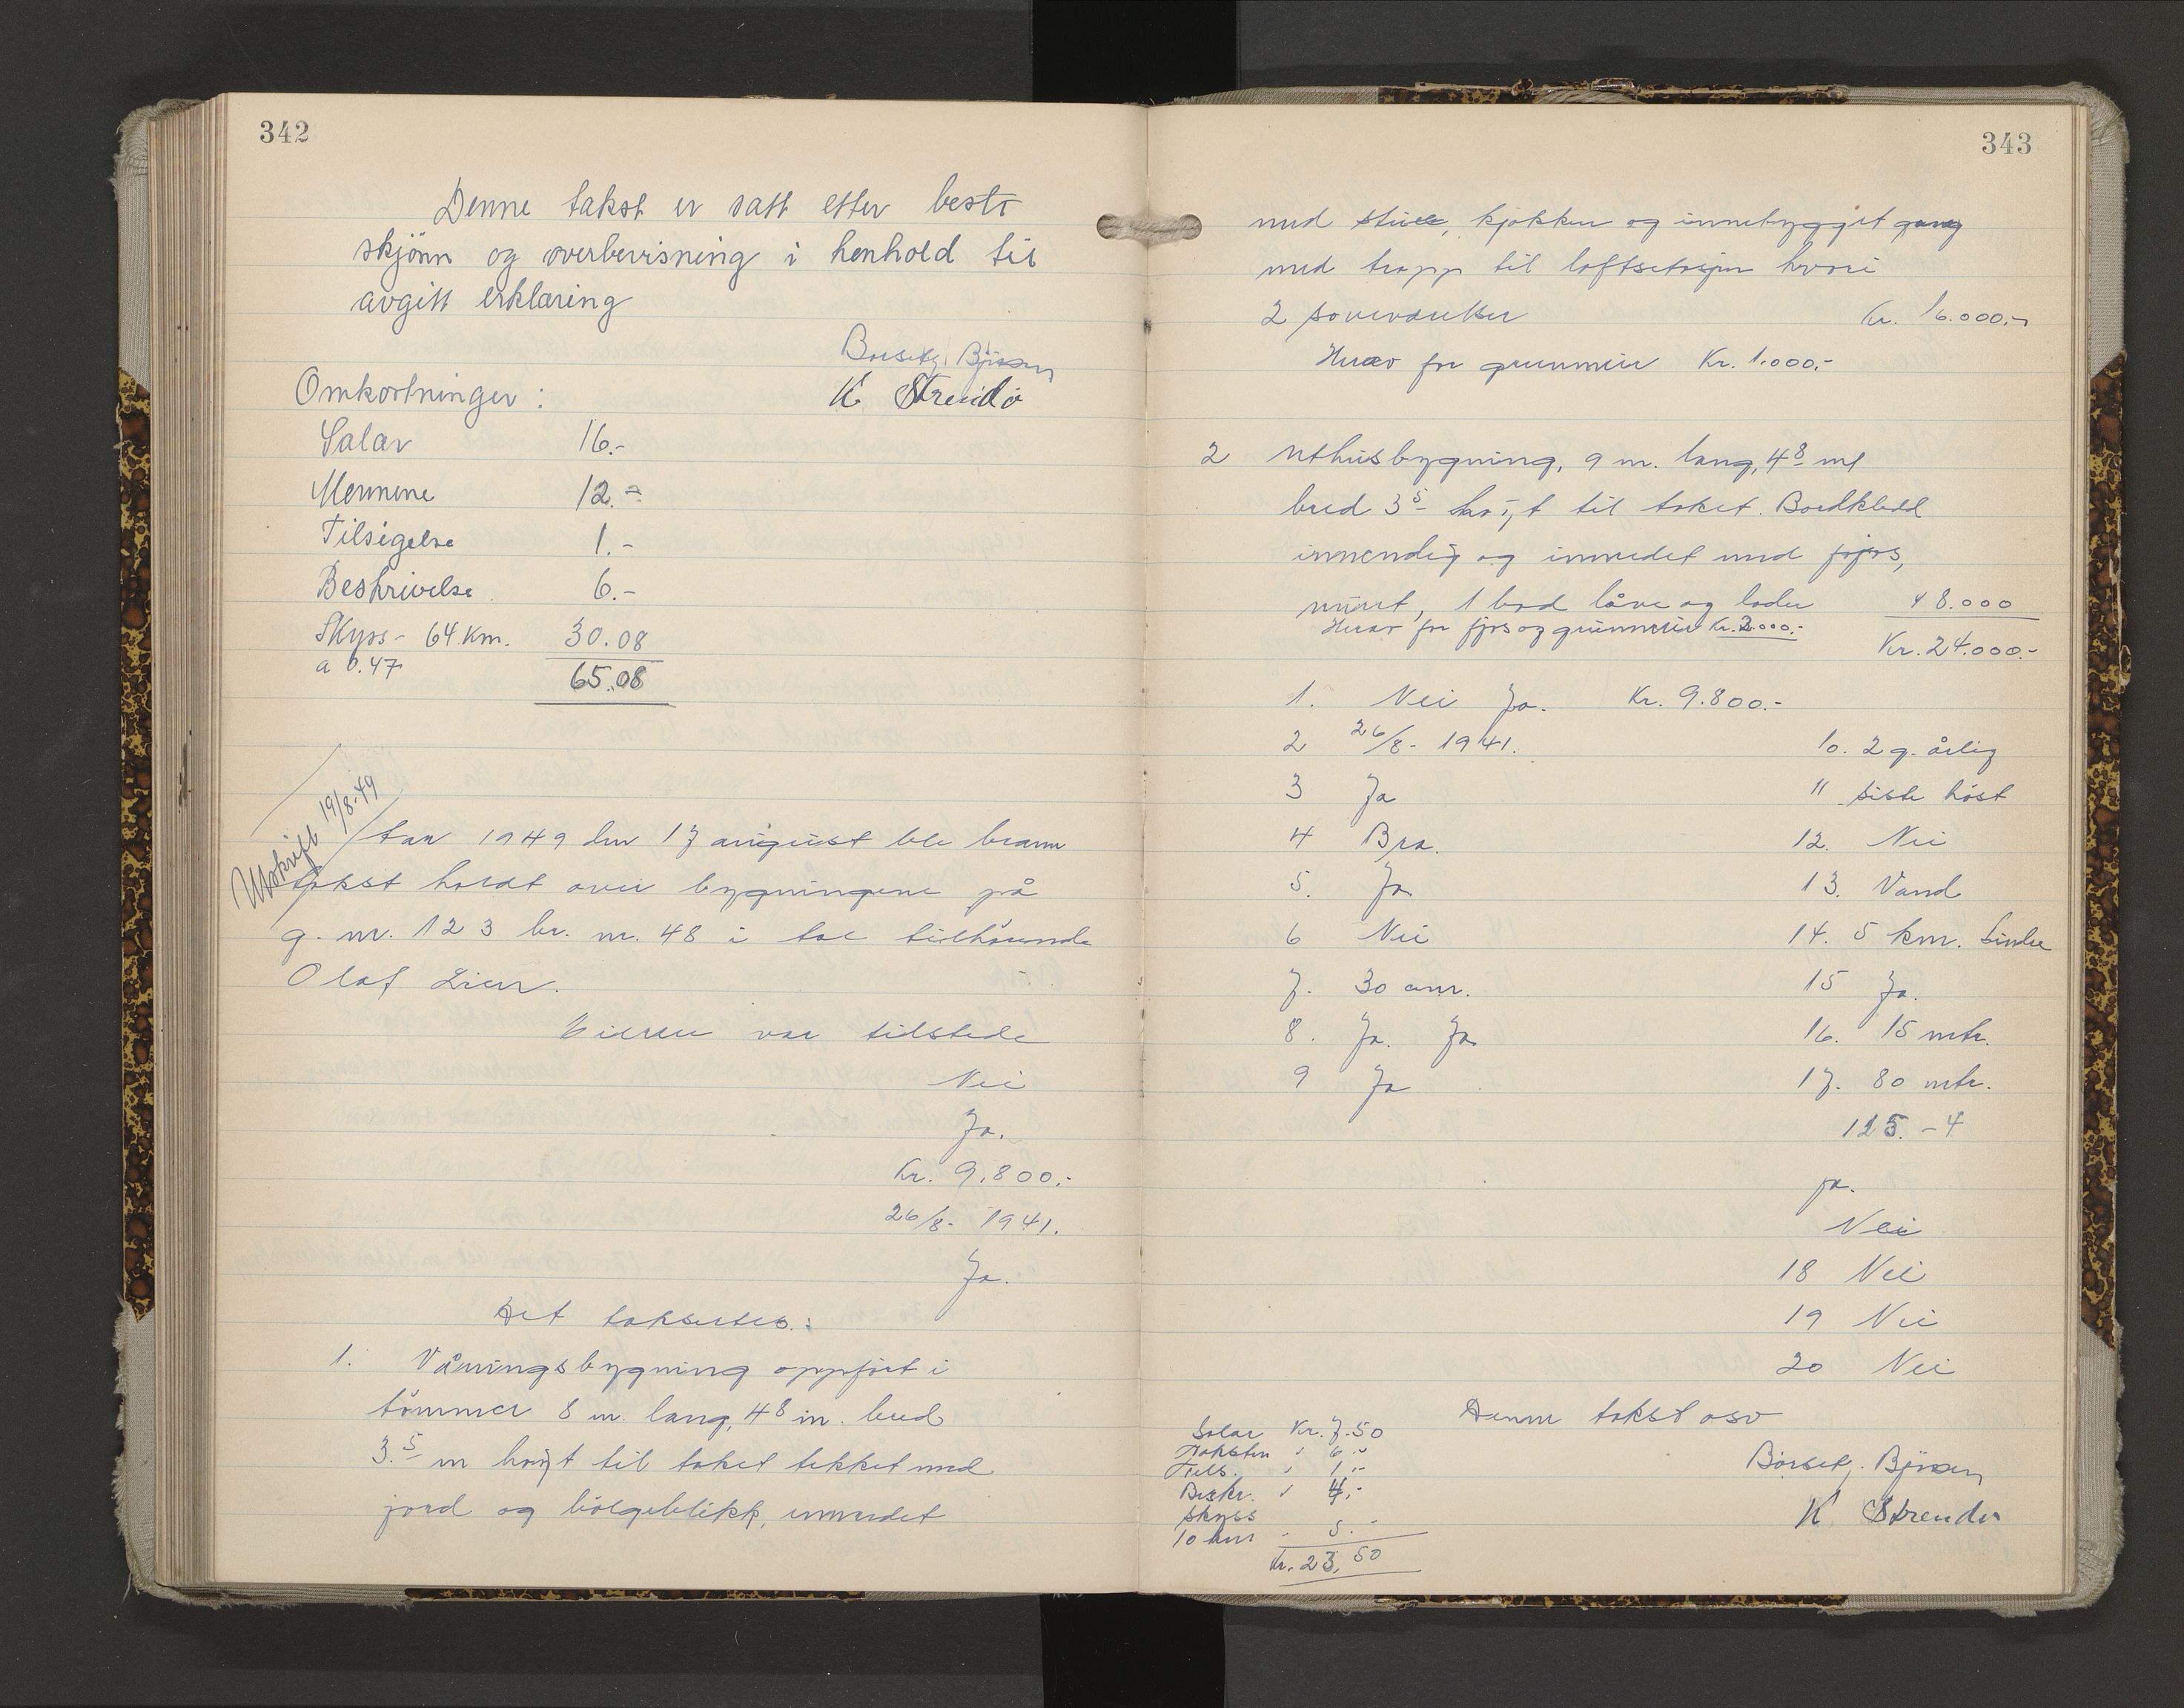 342
Denne takst er satt etter beste
skjönn og overbevisning i henhold til
avgitt erklæring
Börseth Björn
K Strendo
Omkostninger :
Salær 16.-
Mennene 12.-
Tilsigelse 1.-
Beskrivelse 6.-
Skyss - 64 km. 30.08
a 0.47
65.08
Utskrift 19/8-49
Aar 1949 den 17 august ble brann
takst holdt over bygningene på
g. nr. 123 br. nr. 48 i tilhörende
Olaf Lien.
Eieren var tilstede
Nei
Ja.
Kr. 9.800.-
26/8- 1941.
Ja.
Det takseres:
1. Våningsbygning oppfört i
tömmer 8 m. lang, 4 8 m. bred
3. 5 m höyt til taket tekket med
jord og bölgeblikk, innredet
343
med stue, kjökken og innebygget gang
med trapp til loftsetasjen hvori
2 soveværelser Kr. 16.000.-
Herav for grunnmur Kr. 1.000.-
2 Uthusbygning, 9 m. lang, 4 8 mt
bred 3 5 höyt til taket. Bordkledd
innvendig og innredet med fjös,
1 bod låve og lader 8.000
Herav for fjös og grunnmur Kr. 2.000.-
Kr. 24.000.-
1. Nei Ja. Kr. 9.800.-
2 26/8- 1941. 10. 2 g. årlig
3 Ja 11 siste höst
4 Bra. 12. Nei
5. Ja 13. Vand
6 Nei 14. 5 km.
7. 30 cm. 15 Ja.
8. Ja. Ja 16. 15 mtr.
9 Ja 17. 80 mtr.
125. - 4
ja.
Nei
18 Nei
19 Nei
20 Nei
Denne takst osv
Salær Kr. 7.50
Taksten " 6.-
Tils. " 1.-
Beskr. " 4.-
Skyss
10 km - 5.-
Kr. 23.50
Börseth Björn
K Strendo